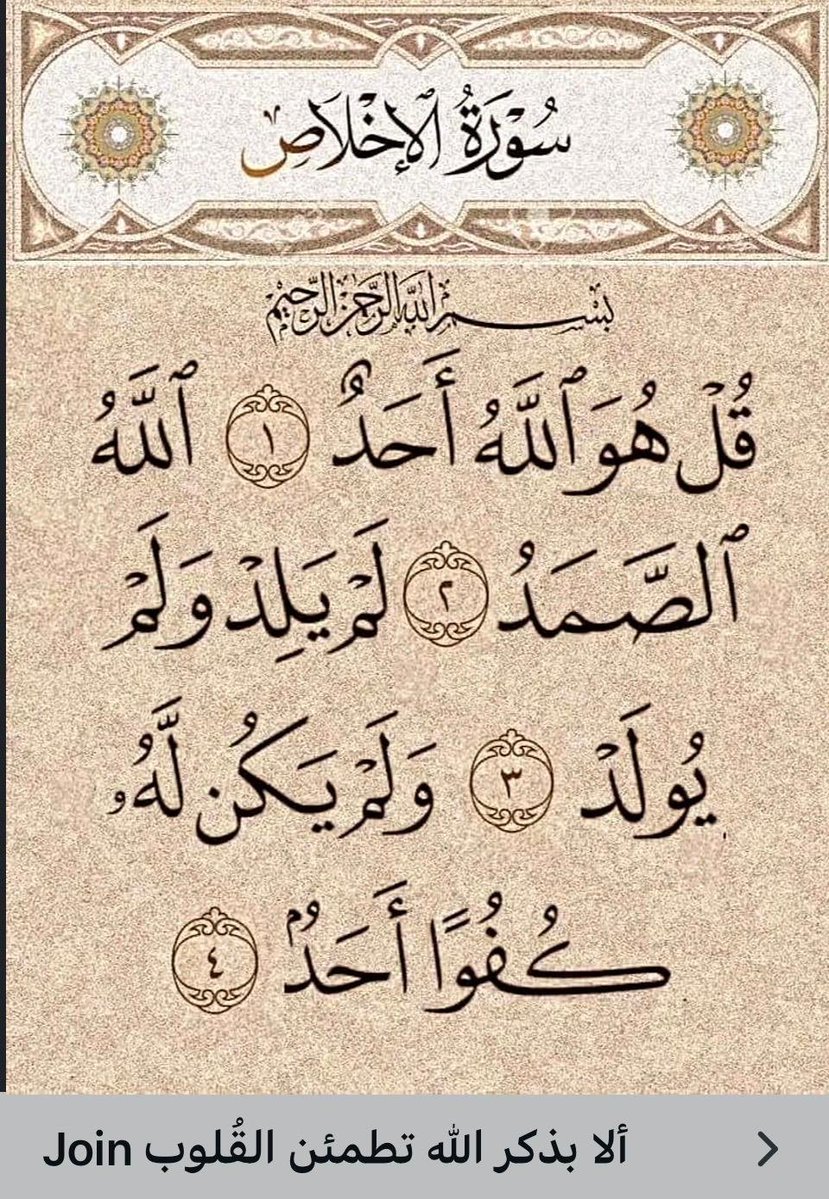 سُورَةُ الإِخْلَاصِ
بِسْمِ اللَّهِ الرَّحْمَٰنِ الرَّحِيمِ
قُلْ هُوَ ٱللَّهُ أَحَدٌ ١ ٱللَّهُ
ٱلصَّمَدُ ٢ لَمْ يَلِدْ وَلَمْ
يُولَدْ ٣ وَلَمْ يَكُن لَّهُۥ
كُفُوًا أَحَدٌۢ ٤
Join ألا بذكر الله تطمئن القُلوب